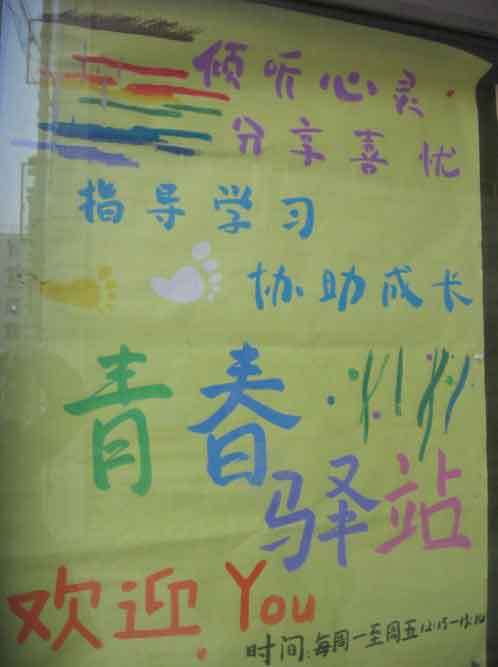 倾听心灵
分享喜忧
指导学习
协助成长
青春
驿站
欢迎You
时间:每周一至周五12:15-13: